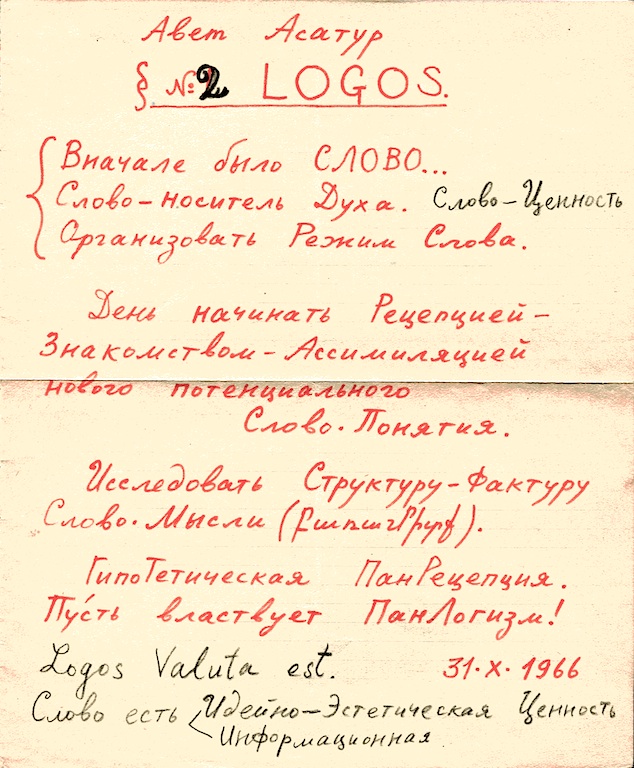 Авет Асатур
§ №2 LOGOS.
Вначале было СЛОВО...
Слово-носитель Духа. Слово-Ценность
Организовать Режим Слова.
День начинать Рецепцией-
Знакомством-Ассимиляцией
нового потенциального
Слово-Понятия.
Исследовать Структуру-Фактуру
Слово-Мысли (բառամիտք).
ГипоТетическая ПанРецепция.
Пусть властвует ПанЛогизм!
Logos Valuta est. 31·X·1966
Слово есть Идейно-Эстетическая Ценность
Информационная